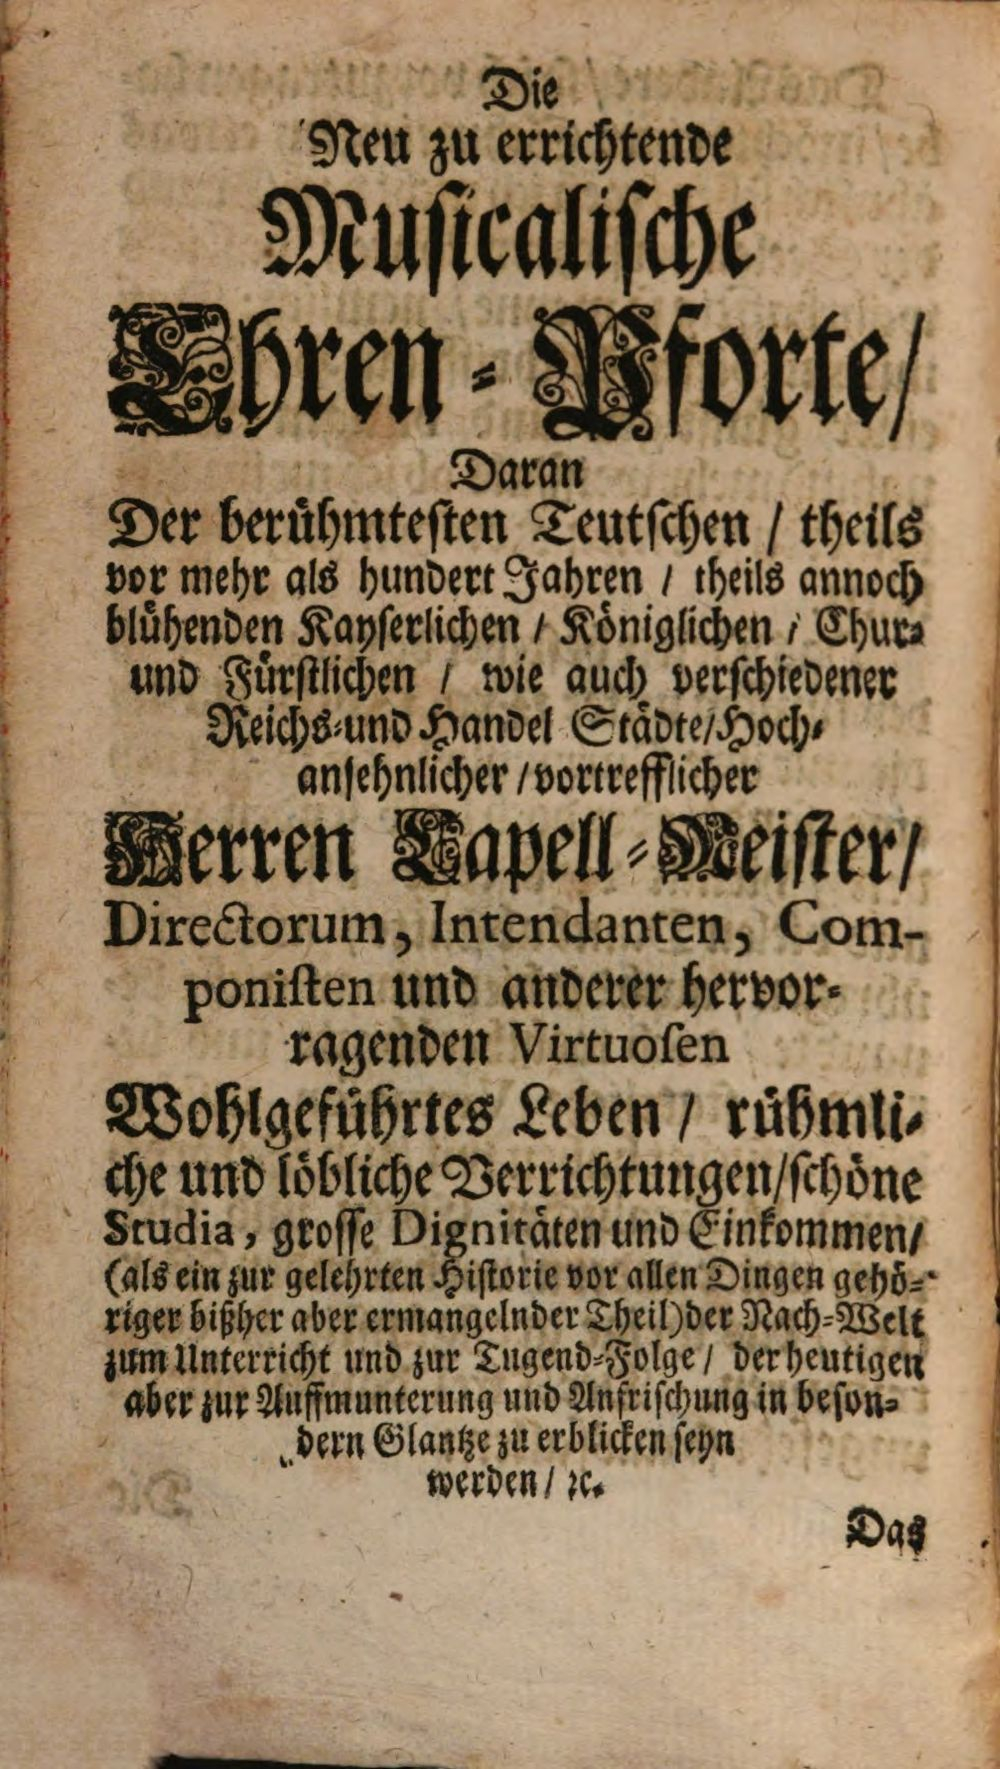 Die
Neu zu errichtende
Musicalische
Ehren-Pforte/
Daran
Der berühmtesten Teutschen / theils
vor mehr als hundert Jahren / theils annoch
blühenden Kayserlichen / Königlichen / Chur-
und Fürstlichen / wie auch verschiedener
Reichs-und Handel Städte/Hoch-
ansehnlicher /vortrefflicher
Herren Capell-Meister/
Directorum, Intendanten, Com-
ponisten und anderer hervor-
ragenden Virtuosen
Wohlgeführtes Leben / rühmli-
che und löbliche Verrichtungen/schöne
Studia, grosse Dignitäten und Einkommen/
(als ein zur gelehrten Historie vor allen Dingen gehö-
riger bißher aber ermangelnder Theil)der Nach-Welt
zum Unterricht und zur Tugend-Folge / der heutigen
aber zur Auffmunterung und Anfrischung in beson-
dern Glantze zu erblicken seyn
werden / ꝛc.
Das